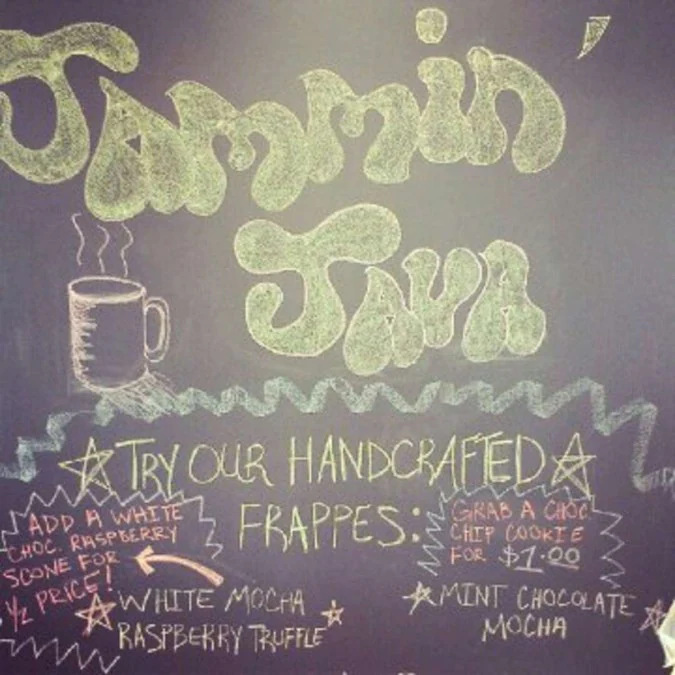 Jammin'
Java
TRY OUR HANDCRAFTED
FRAPPES:
ADD A WHITE
CHOC. RASPBERRY
SCONE FOR
1/2 PRICE!
GRAB A CHOC
CHIP COOKIE
FOR $1.00
WHITE MOCHA
RASPBERRY TRUFFLE
MINT CHOCOLATE
MOCHA